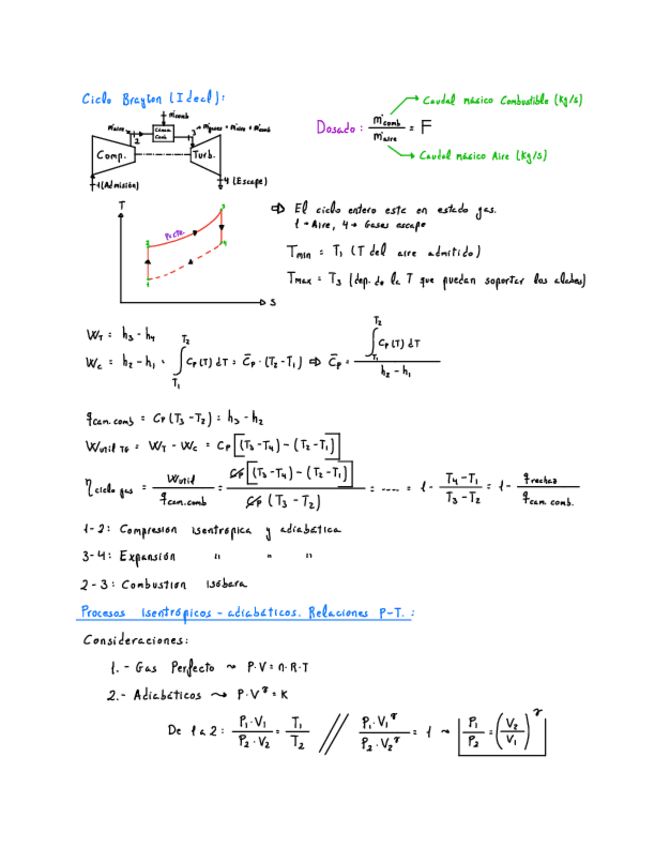 Ciclo Brayton (Ideal):
ṁcomb
ṁaire
Cámara Comb.
ṁgases = ṁaire + ṁcomb
2
3
Comp.
Turb.
1 (Admisión)
4 (Escape)
Dosado: ṁcomb / ṁaire = F
Caudal másico Combustible (kg/s)
Caudal másico Aire (kg/s)
T
P=cte.
1
2
3
4
S
⇒ El ciclo entero está en estado gas.
1 → Aire, 4 → Gases escape
Tmin = T1 (T del aire admitido)
Tmax = T3 (dep. de la T que puedan soportar los alabes)
WT = h3 - h4
Wc = h2 - h1 = ∫T1^T2 Cp(T) dT = C̄p · (T2 - T1) ⇒ C̄p = ∫T1^T2 Cp(T) dT / h2 - h1
qcam.comb = Cp (T3 - T2) = h3 - h2
Wútil TG = WT - Wc = Cp [(T3 - T4) - (T2 - T1)]
η ciclo gas = Wútil / qcam.comb = Cp [(T3 - T4) - (T2 - T1)] / Cp (T3 - T2) = .... = 1 - T4 - T1 / T3 - T2 = 1 - qrechaz / qcam. comb.
1-2: Compresión isentrópica y adiabática
3-4: Expansión " " "
2-3: Combustión isóbara
Procesos isentrópicos-adiabáticos. Relaciones P-T.:
Consideraciones:
1.- Gas Perfecto ~ P·V = n·R·T
2.- Adiabáticos ~> P·V^γ = K
De 1 a 2: P1·V1 / P2·V2 = T1 / T2 // P1·V1^γ / P2·V2^γ = 1 ~> P1 / P2 = (V2 / V1)^γ